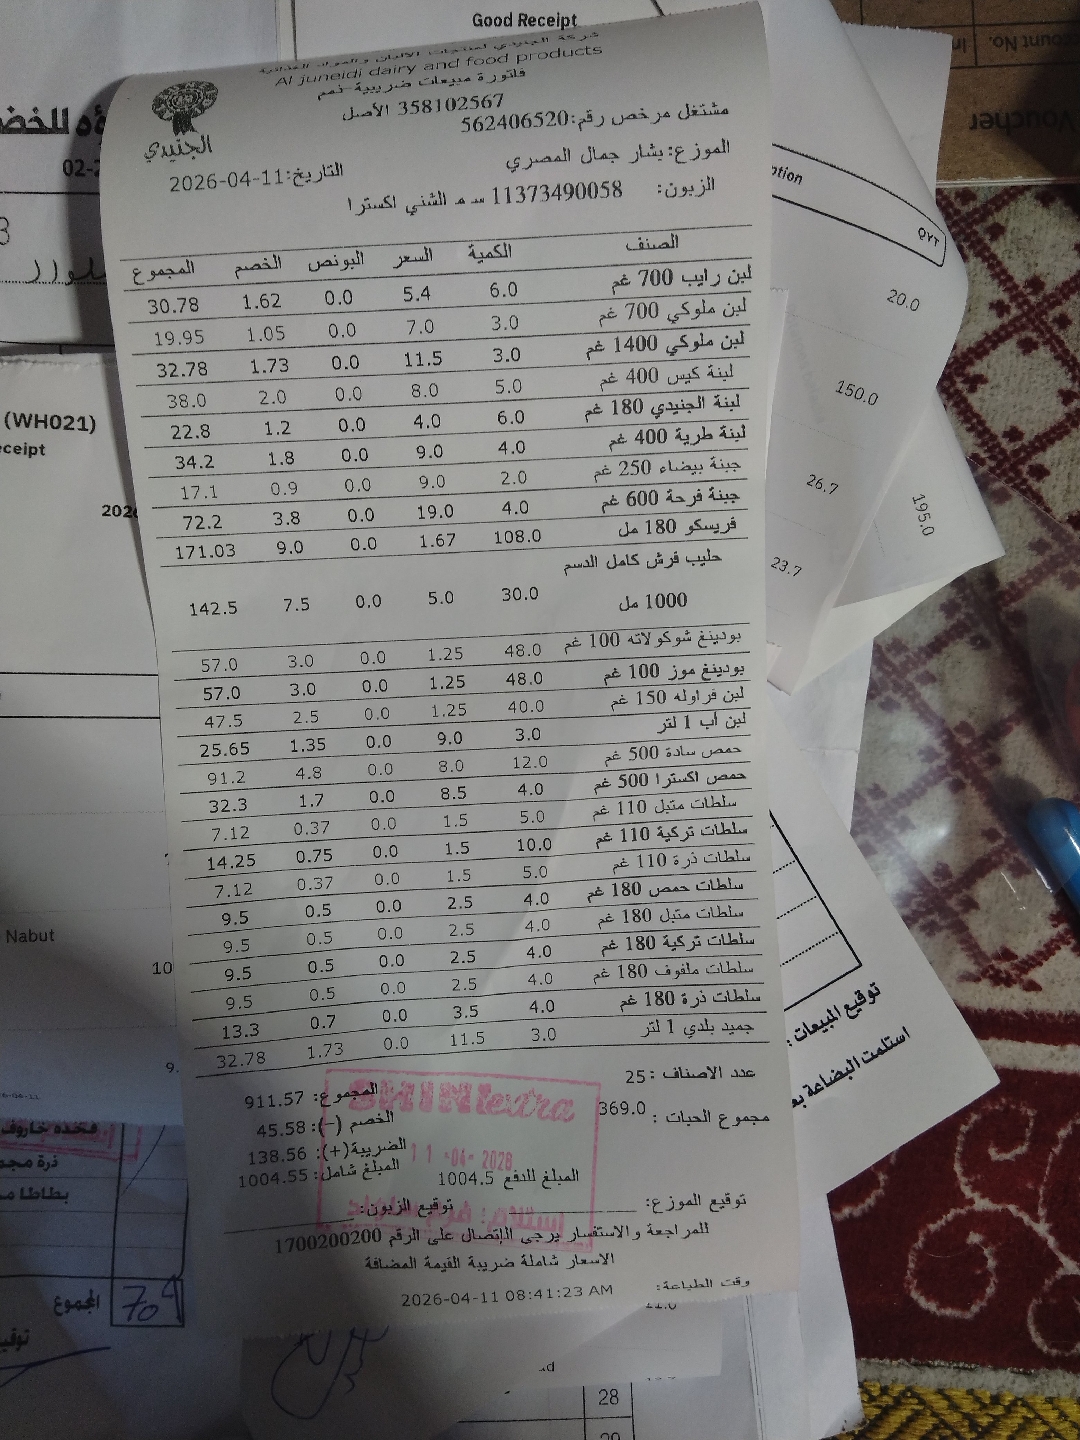 Good Receipt
شركة الجنيدي لمنتجات الألبان والمواد الغذائية
Al juneidi dairy and food products
فاتورة مبيعات ضريبية-ذمم
358102567 الأصل
مشتغل مرخص رقم:562406520
الجنيدي
الموزع: بشار جمال المصري
التاريخ:2026-04-11
الزبون: 11373490058 س م الشني اكسترا
الصنف الكمية السعر البونص الخصم المجموع
لبن رايب 700 غم 6.0 5.4 0.0 1.62 30.78
لبن ملوكي 700 غم 3.0 7.0 0.0 1.05 19.95
لبن ملوكي 1400 غم 3.0 11.5 0.0 1.73 32.78
لبنة كيس 400 غم 5.0 8.0 0.0 2.0 38.0
لبنة الجنيدي 180 غم 6.0 4.0 0.0 1.2 22.8
لبنة طرية 400 غم 4.0 9.0 0.0 1.8 34.2
جبنة بيضاء 250 غم 2.0 9.0 0.0 0.9 17.1
جبنة فرحة 600 غم 4.0 19.0 0.0 3.8 72.2
فريسكو 180 مل 108.0 1.67 0.0 9.0 171.03
حليب فرش كامل الدسم
1000 مل 30.0 5.0 0.0 7.5 142.5
بودينغ شوكولاته 100 غم 48.0 1.25 0.0 3.0 57.0
بودينغ موز 100 غم 48.0 1.25 0.0 3.0 57.0
لبن فراوله 150 غم 40.0 1.25 0.0 2.5 47.5
لبن أب 1 لتر 3.0 9.0 0.0 1.35 25.65
حمص سادة 500 غم 12.0 8.0 0.0 4.8 91.2
حمص اكسترا 500 غم 4.0 8.5 0.0 1.7 32.3
سلطات متبل 110 غم 5.0 1.5 0.0 0.37 7.12
سلطات تركية 110 غم 10.0 1.5 0.0 0.75 14.25
سلطات ذرة 110 غم 5.0 1.5 0.0 0.37 7.12
سلطات حمص 180 غم 4.0 2.5 0.0 0.5 9.5
سلطات متبل 180 غم 4.0 2.5 0.0 0.5 9.5
سلطات تركية 180 غم 4.0 2.5 0.0 0.5 9.5
سلطات ملفوف 180 غم 4.0 2.5 0.0 0.5 9.5
سلطات ذرة 180 غم 4.0 3.5 0.0 0.7 13.3
جميد بلدي 1 لتر 3.0 11.5 0.0 1.73 32.78
عدد الاصناف : 25
مجموع الحبات : 369.0
المجموع: 911.57
الخصم (-): 45.58
الضريبة(+): 138.56
المبلغ شامل: 1004.55
المبلغ للدفع 1004.5
SHINI extra
11 -04- 2026
توقيع الموزع:
توقيع الزبون:
للمراجعة والاستفسار يرجى الإتصال على الرقم 1700200200
الاسعار شاملة ضريبة القيمة المضافة
وقت الطباعة: 2026-04-11 08:41:23 AM
(WH021)
Nabut
ذرة
بطاطا
المجموع
704
Voucher
QYT
20.0
150.0
26.7
195.0
23.7
توقيع المبيعات :
استلمت البضاعة
28